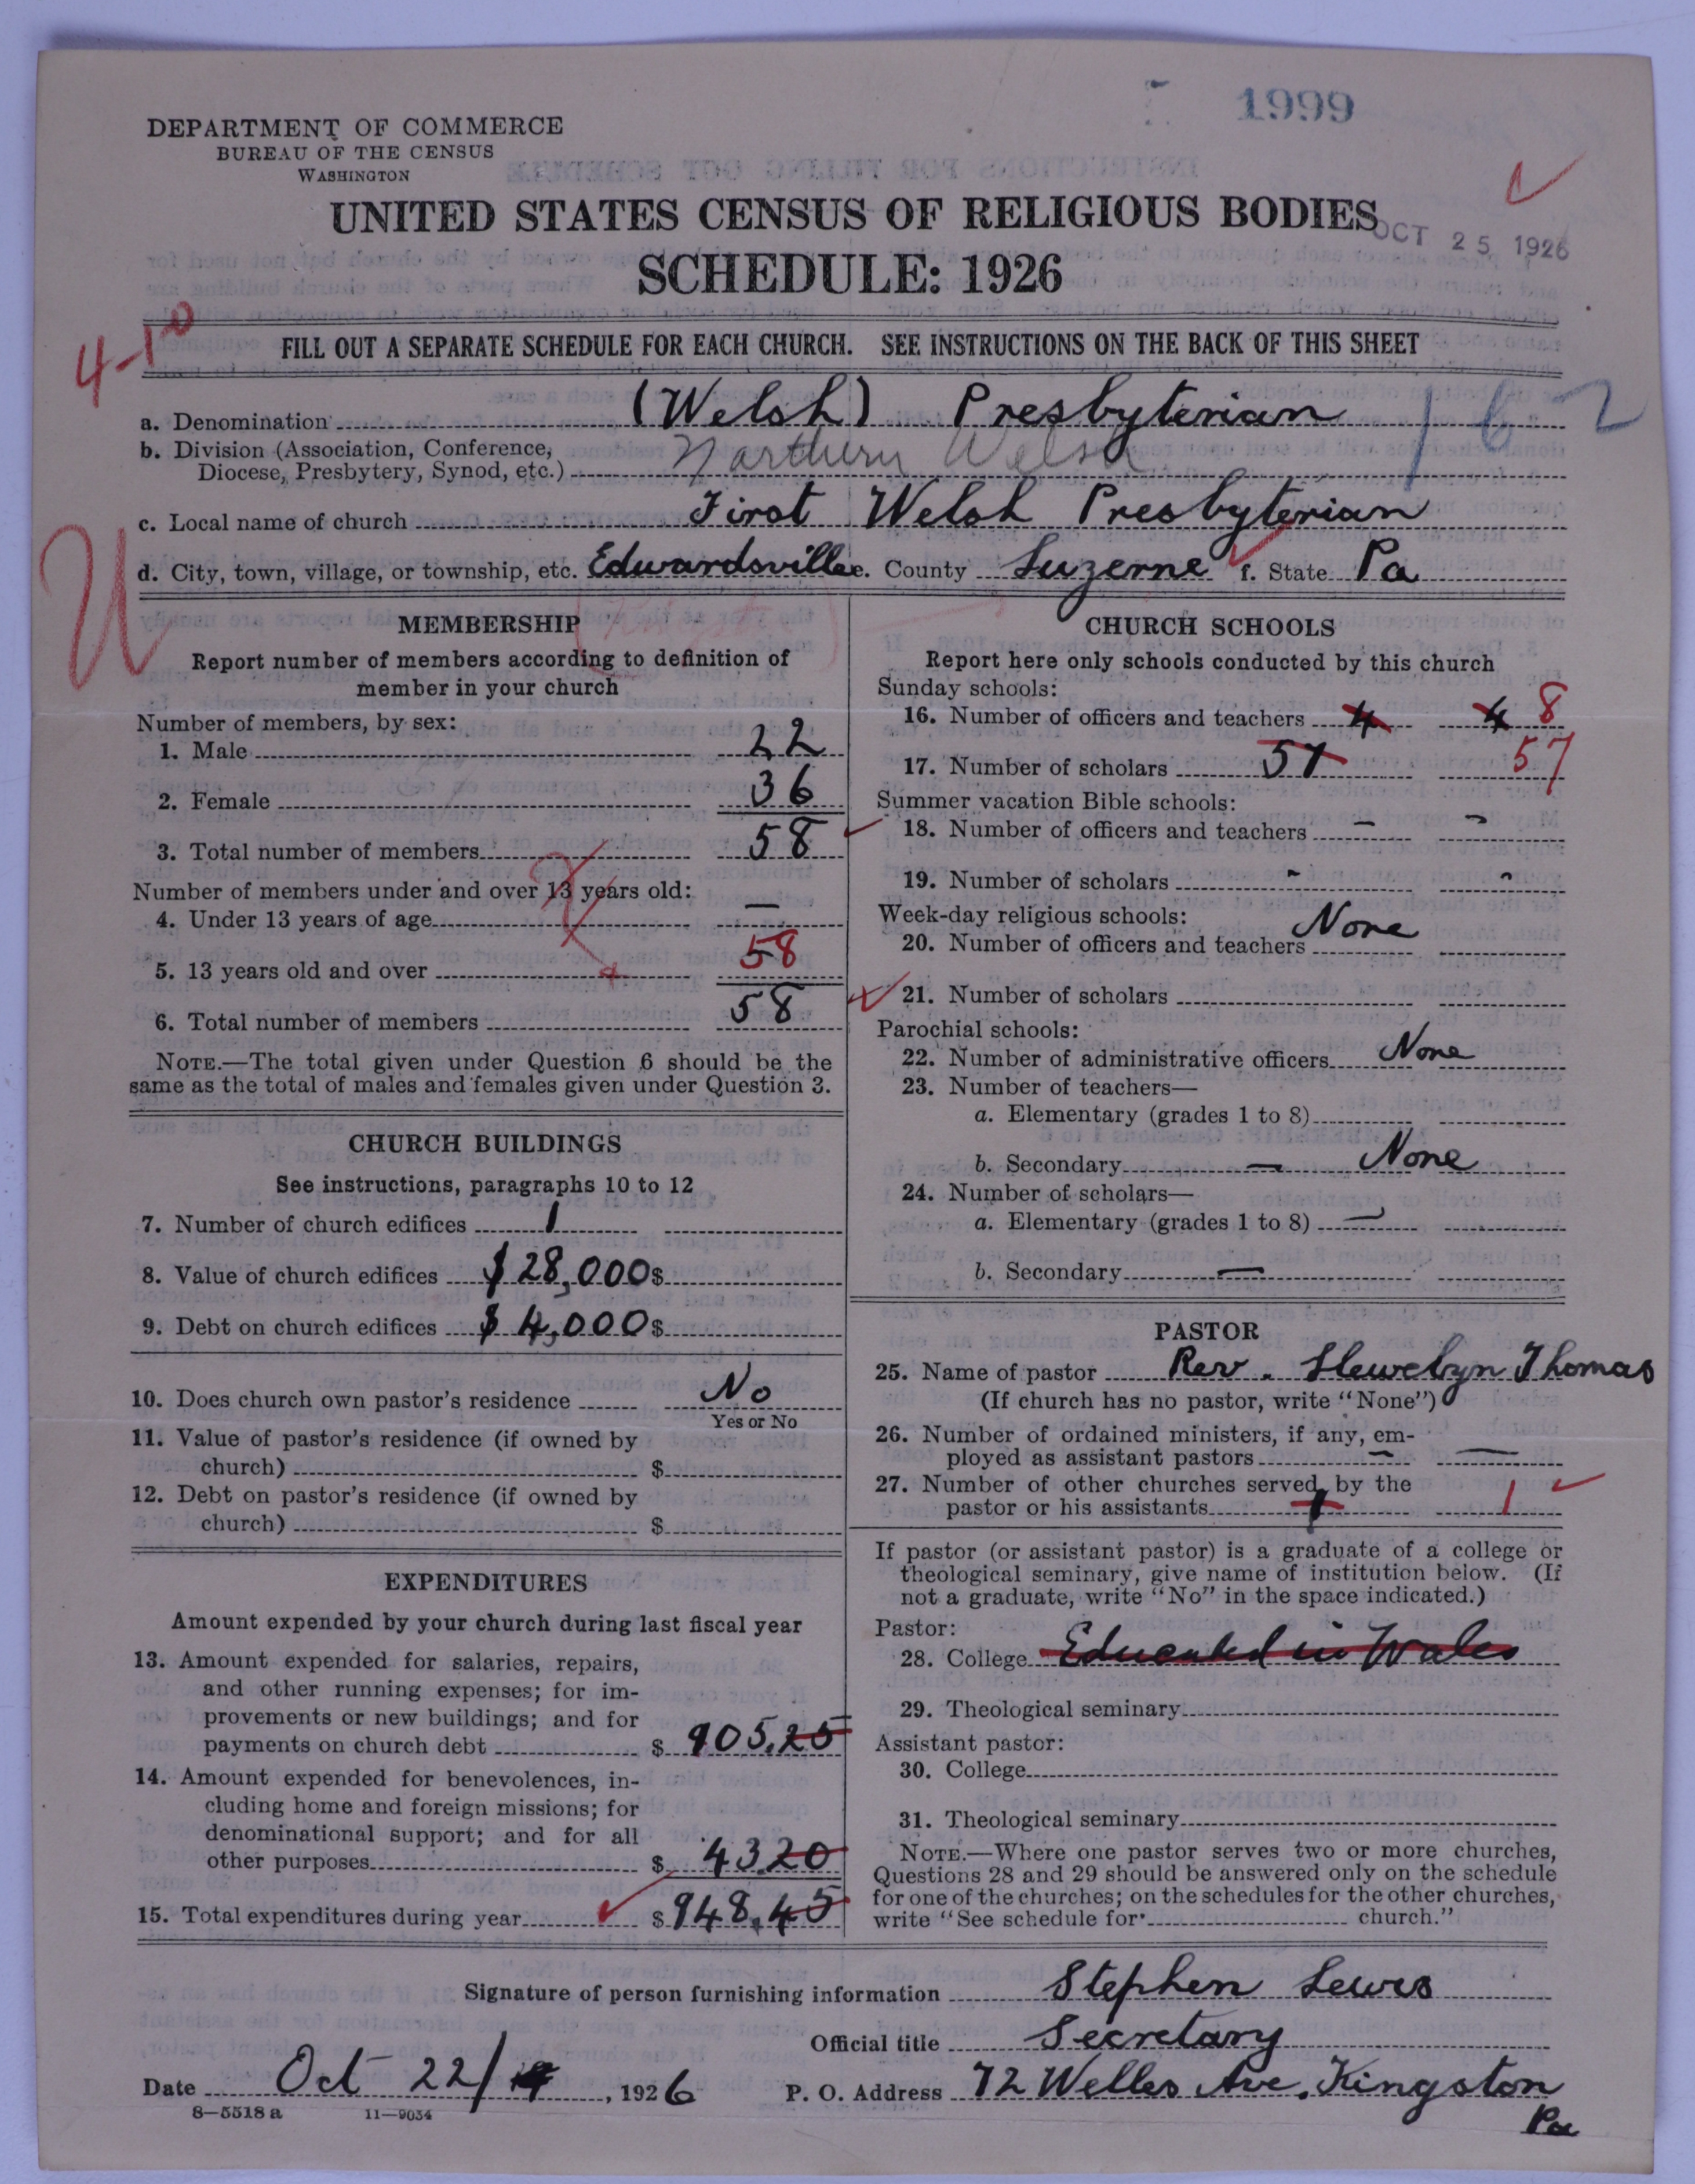 1999
DEPARTMENT OF COMMERCE
BUREAU OF THE CENSUS
WASHINGTON
UNITED STATES CENSUS OF RELIGIOUS BODIES
OCT 25 1926
SCHEDULE: 1926
4-10
FILL OUT A SEPARATE SCHEDULE FOR EACH CHURCH. SEE INSTRUCTIONS ON THE BACK OF THIS SHEET
a. Denomination (Welsh) Presbyterian 162
b. Division (Association, Conference,
Diocese, Presbytery, Synod, etc.) Northern Welsh
c. Local name of church First Welsh Presbyterian
d. City, town, village, or township, etc. Edwardsville e. County Luzerne f. State Pa
U
MEMBERSHIP
Report number of members according to definition of
member in your church
Number of members, by sex:
1. Male 22
2. Female 36
3. Total number of members 58
Number of members under and over 13 years old:
4. Under 13 years of age —
5. 13 years old and over 58
6. Total number of members 58
NOTE.—The total given under Question 6 should be the
same as the total of males and females given under Question 3.
CHURCH BUILDINGS
See instructions, paragraphs 10 to 12
7. Number of church edifices 1
8. Value of church edifices $28,000 $
9. Debt on church edifices $4,000 $
10. Does church own pastor's residence No
Yes or No
11. Value of pastor's residence (if owned by
church) $
12. Debt on pastor's residence (if owned by
church) $
EXPENDITURES
Amount expended by your church during last fiscal year
13. Amount expended for salaries, repairs,
and other running expenses; for im-
provements or new buildings; and for
payments on church debt $ 905.25
14. Amount expended for benevolences, in-
cluding home and foreign missions; for
denominational support; and for all
other purposes $ 43.20
15. Total expenditures during year $ 948.45
CHURCH SCHOOLS
Report here only schools conducted by this church
Sunday schools:
16. Number of officers and teachers 4 4 8
17. Number of scholars 57 57
Summer vacation Bible schools:
18. Number of officers and teachers - -
19. Number of scholars - -
Week-day religious schools:
20. Number of officers and teachers None
21. Number of scholars
Parochial schools:
22. Number of administrative officers None
23. Number of teachers—
a. Elementary (grades 1 to 8)
b. Secondary — None
24. Number of scholars—
a. Elementary (grades 1 to 8) —
b. Secondary —
PASTOR
25. Name of pastor Rev. Llewelyn Thomas
(If church has no pastor, write "None")
26. Number of ordained ministers, if any, em-
ployed as assistant pastors — —
27. Number of other churches served by the
pastor or his assistants 1 1
If pastor (or assistant pastor) is a graduate of a college or
theological seminary, give name of institution below. (If
not a graduate, write "No" in the space indicated.)
Pastor:
28. College Educated in Wales
29. Theological seminary
Assistant pastor:
30. College
31. Theological seminary
NOTE.—Where one pastor serves two or more churches,
Questions 28 and 29 should be answered only on the schedule
for one of the churches; on the schedules for the other churches,
write "See schedule for church."
Signature of person furnishing information Stephen Lewis
Official title Secretary
Date Oct 22/ , 1926
P. O. Address 72 Welles Ave. Kingston
Pa
8—5518 a 11—9034